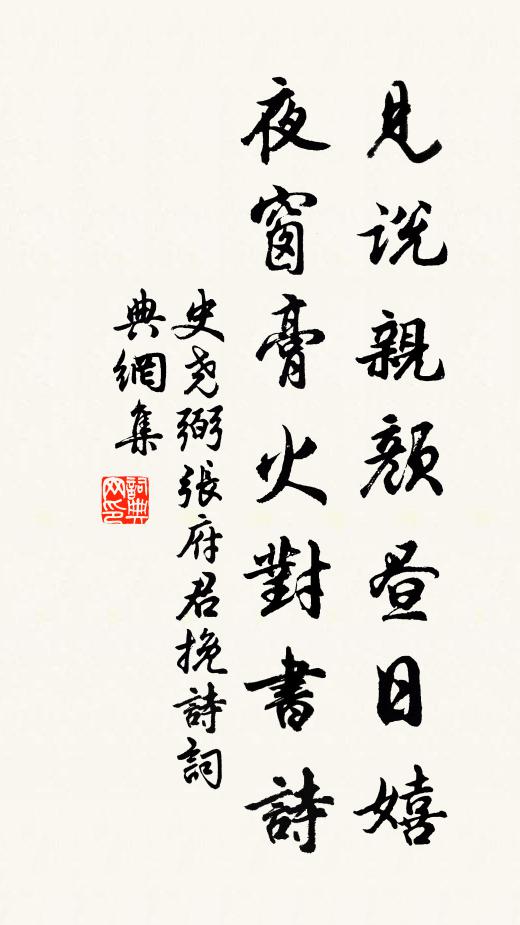 見説親顔昼日嬉
夜窗膏火對書詩
史堯弼張府君挽詩詞
典網集
詞典网印